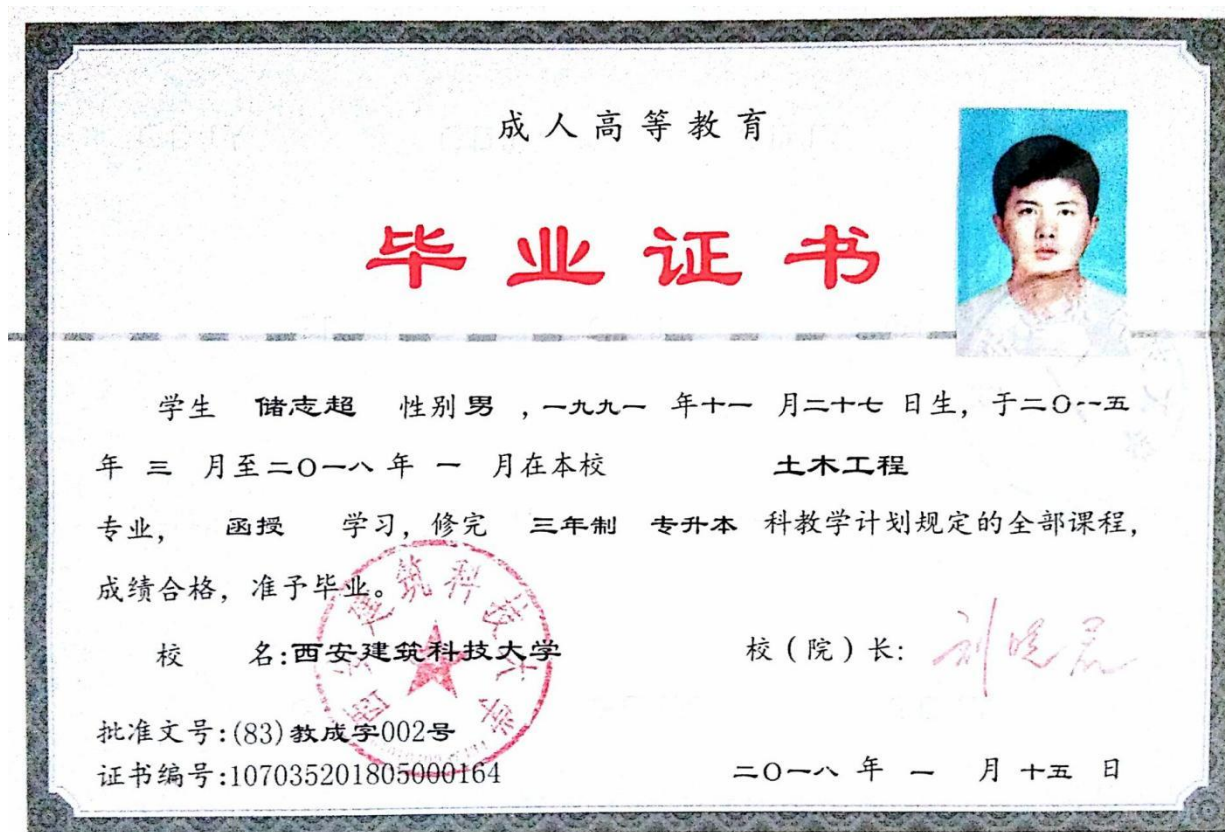 成人高等教育
毕业证书
学生 储志超 性别 男 ,一九九一 年十一 月二十七 日生, 于二〇一五
年 三 月至二〇一八 年 一 月在本校 土木工程
专业, 函授 学习, 修完 三年制 专升本 科教学计划规定的全部课程,
成绩合格, 准予毕业。
西安建筑科技大学
校 名:西安建筑科技大学 校(院)长: 刘晓君
批准文号:(83)教成字002号
证书编号:107035201805000164 二〇一八 年 一 月 十五 日